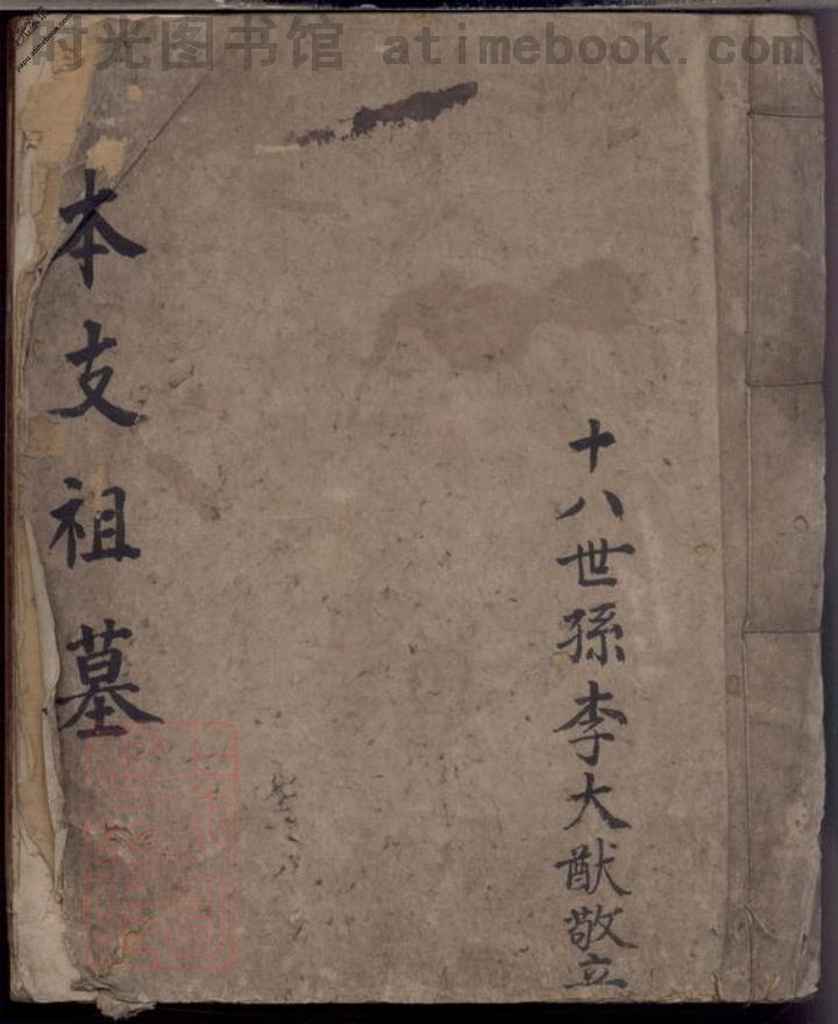 时光图书馆 atimebook.com
十八世孫李大猷敬立
本支祖墓